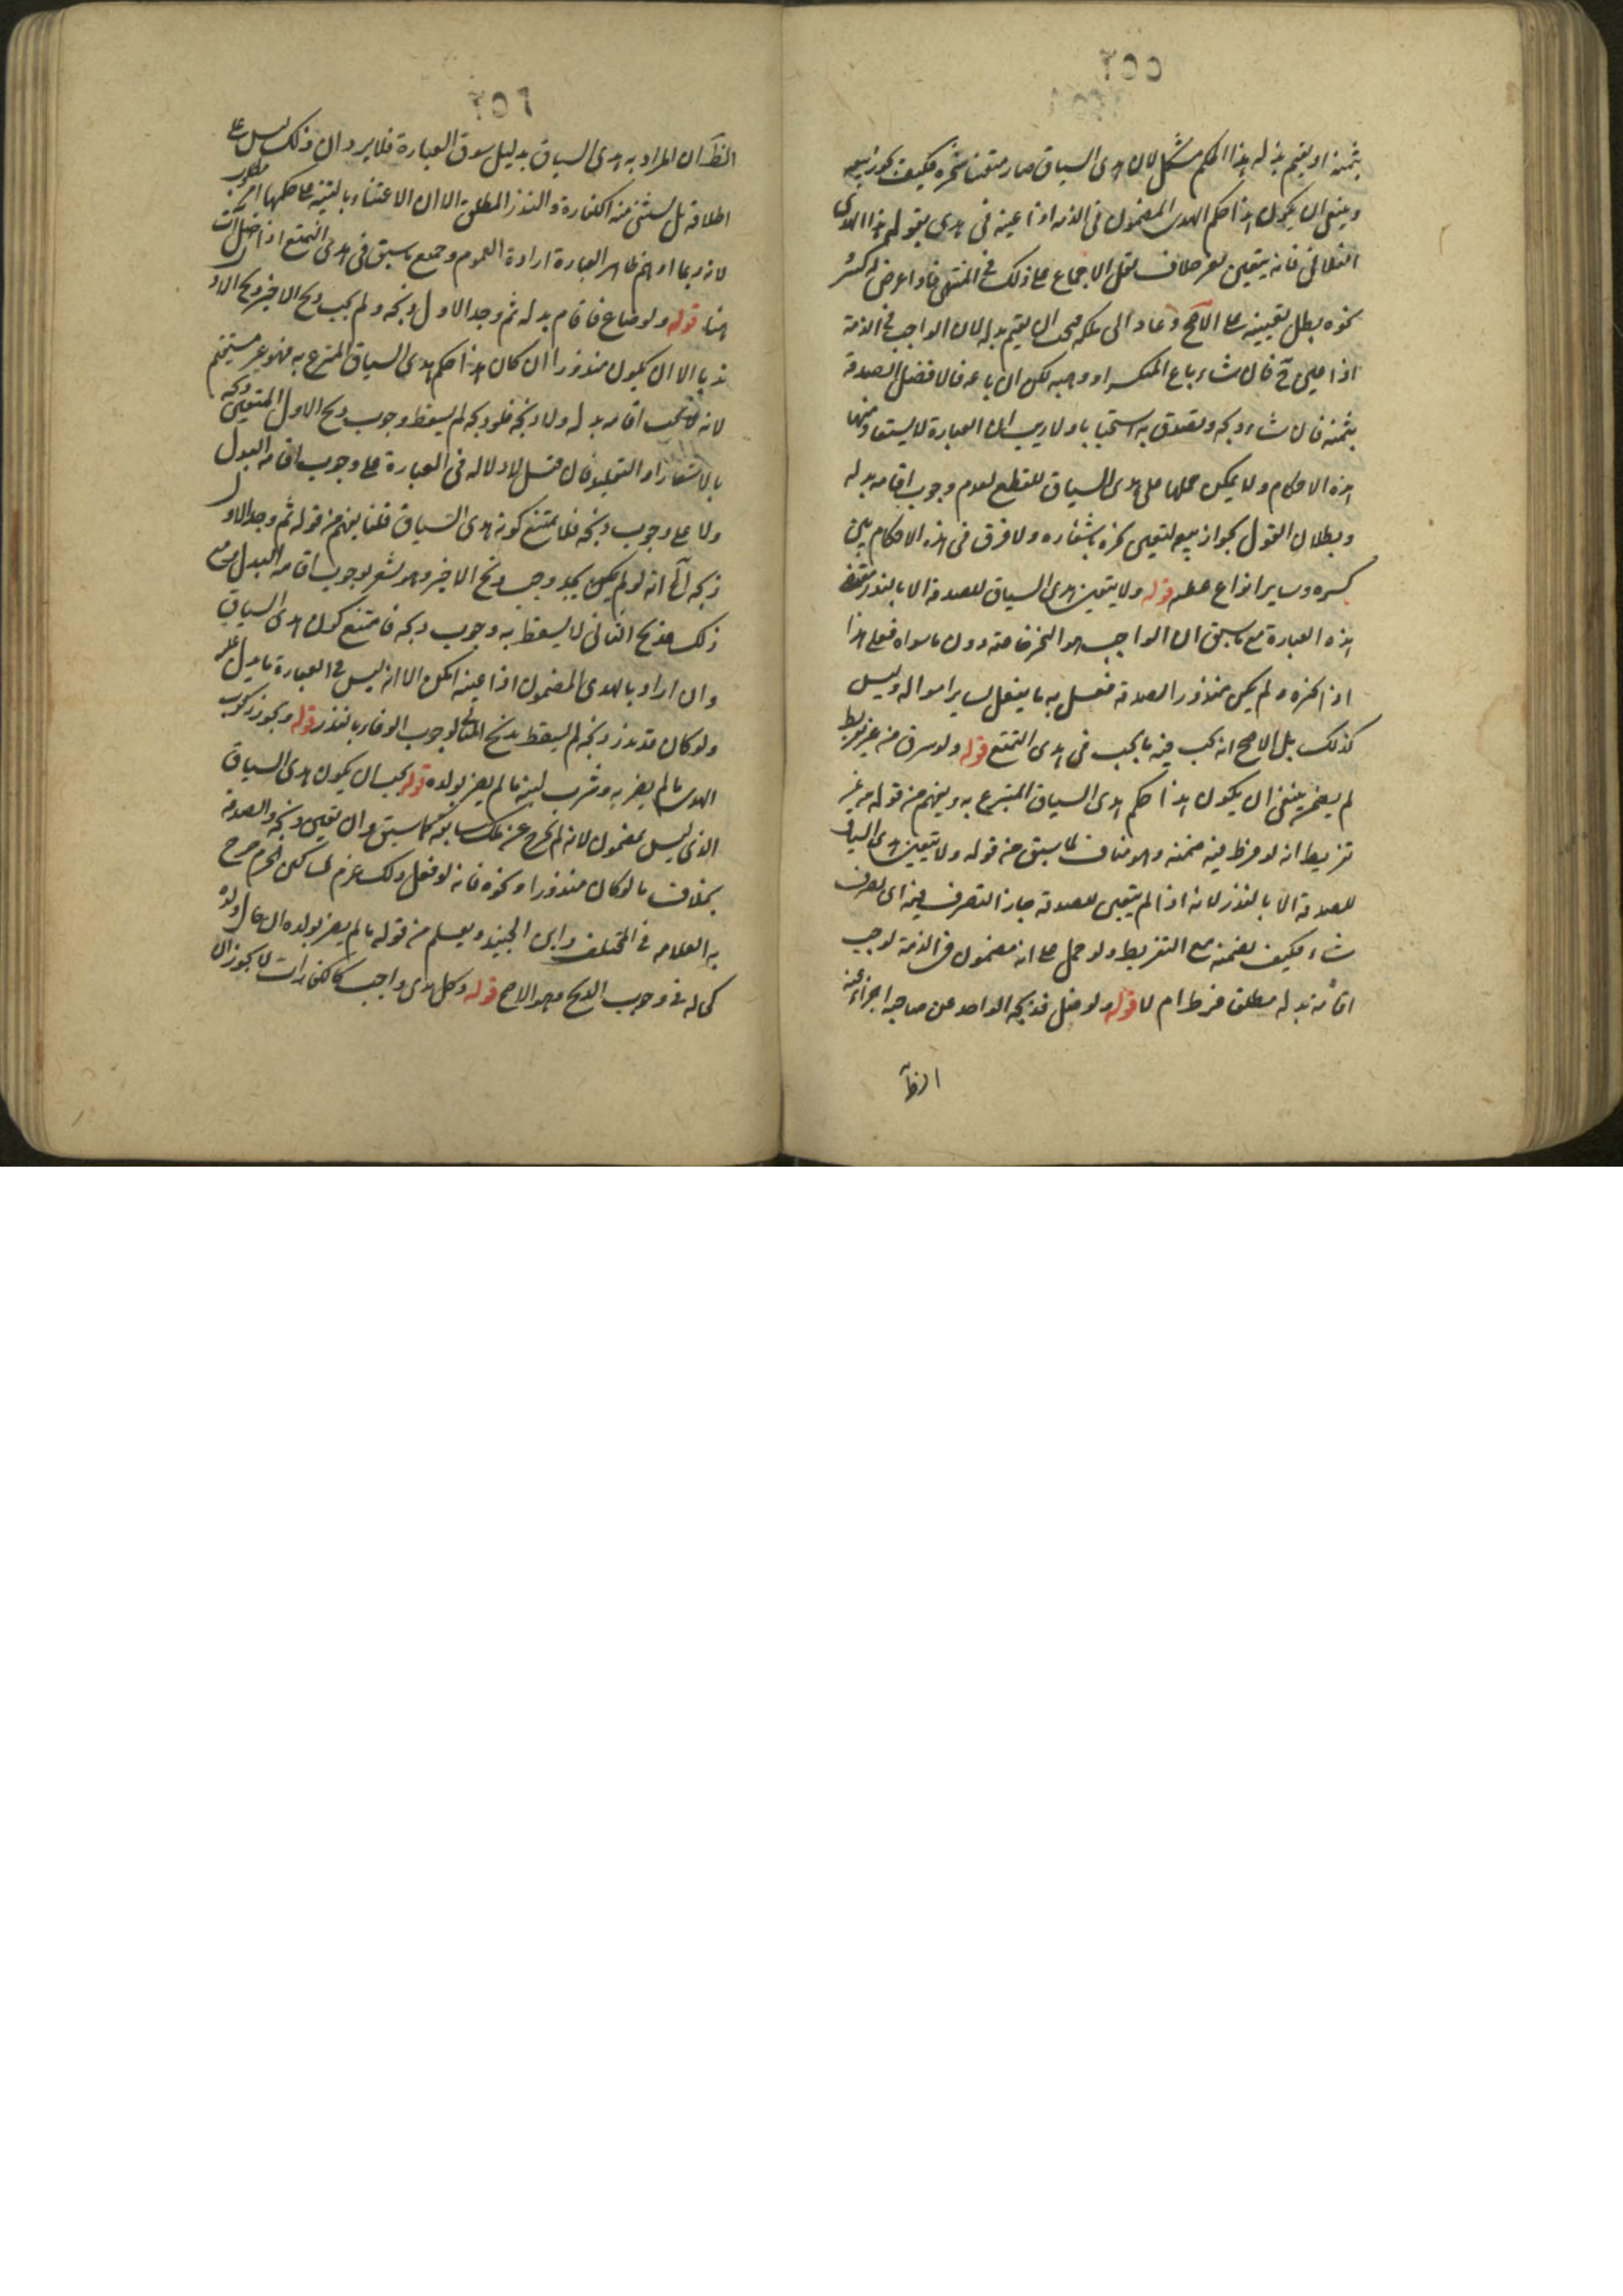 ٢٥٥
بثمنه او يقيم بدله هذا الحكم مشكل لان هدى السياق صار متعينا نحره فكيف يجوز بيعه
وينبغى ان يكون هذا حكم الهدى المضمون فى الذمه اذا عينه فى هدى بقوله هذا الهدى
الفلانى فانه يتعين بغير خلاف نقل الاجماع على ذلك فى المنتهى فاذا عرض له كسر
نحوه بطل تعيينه على الاصح وعاد الى ملكه فيجب ان يقيم بدله لان الواجب فى الذمة
اذا عين فان شاء باع المنكسر او وهبه لكن ان باعه فالافضل الصدقة
بثمنه فان شاء ذبحه وتصدق به استحبابا ولا ريب ان العبارة لا يستفاد منها
هذه الاحكام ولا يمكن حملها على هدى السياق للقطع لعدم وجوب اقامه بدله
وبطلان القول بجواز بيعه لتعين نحره باشعاره ولا فرق فى هذه الاحكام بين
كسره وساير انواع عطبه قوله ولا يتعين هدى السياق للصدقة الا بالنذر مقتضى
هذه العبارة مع ما سبق ان الواجب هو النحر خاصه دون ما سواه فعلى هذا
اذا نحره ولم يكن منذور الصدقه فعل به ما يفعل بساير امواله وليس
كذلك بل الاصح انه يجب فيه ما يجب فى هدى التمتع قوله ولو سرق من غير تفريط
لم يضمن ينبغى ان يكون هذا حكم هدى السياق المتبرع به ويفهم من قوله من غير
تفريط انه لو فرط فيه ضمنه وهو مناف لما سبق من قوله ولا يتعين هدى السياق
للصدقة الا بالنذر لانه اذا لم يتعين للصدقه جاز التصرف فيه اى تصرف
شاء فكيف يضمنه مع التفريط ولو حمل على انه مضمون فى الذمه لوجب
اقامه بدله مطلقا فرط ام لا قوله ولو ضل فذبحه الواجد عن صاحبه اجزاء عنه
الظاهر
٢٥٦
الظاهر ان المراد به هدى السياق بدليل سوق العبارة فلا يرد ان ذلك ليس على
اطلاقه بل يستثنى منه الكفارة والنذر المطلق الا ان الاعتناء بالتنبيه على حكمها امر مطلوب
لانه ربما اوهم ظاهر العبارة ارادة العموم وجميع ما سبق فى هدى التمتع اذا ضل آت
هنا قوله ولو ضاع فاقام بدله ثم وجد الاول ذبحه ولم يجب ذبح الاخير وذبح الاول
ندبا الا ان يكون منذورا ان كان هذا حكم هدى السياق المتبرع به فهو غير مستقيم
لانه لا يجب اقامه بدله ولا ذبحه فلو ذبحه لم يسقط وجوب ذبح الاول المتعين ذبحه
بالاشعار او التقليد فان قيل لا دلاله فى العبارة على وجوب اقامه البدل
ولا على وجوب ذبحه فلا يمتنع كونه هدى السياق قلنا يفهم من قوله ثم وجد الاول
ذبحه الخ انه لو لم يكن يجد وجب ذبح الاخير وهو يشعر بوجوب اقامه البدل مع
ذلك فذبح الثانى لا يسقط به وجوب ذبحه فامتنع كون هدى السياق
وان اراد بالهدى المضمون اذا عينه امكن الا انه ليس فى العبارة ما يدل عليه
ولو كان قد نذر ذبحه لم يسقط بذبح البدل لوجوب الوفاء بالنذر قوله ويجوز ركوب
الهدى ما لم يضر به وشرب لبنه ما لم يضر بولده قوله يجب ان يكون هدى السياق
الذى ليس بمضمون لانه لم يخرج عن ملك سايقه كما سبق وان تعين ذبحه والصدقة
بخلاف ما لو كان منذورا ونحوه فانه لو فعل ذلك غرم لمساكين الحرم صرح
به العلامه فى المختلف وابن الجنيد ويعلم من قوله ما لم يضر بولده ان حال ولده
كحاله فى وجوب الذبح وهو الاصح قوله وكل هدى واجب كالكفارات لا يجوز ان